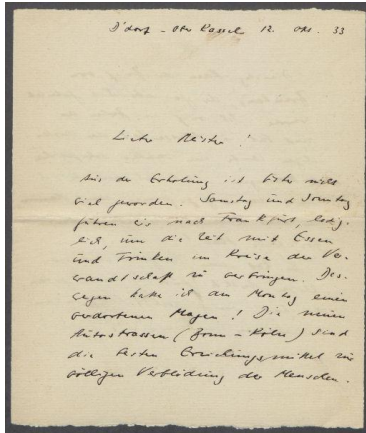 D'dorf - Ober Kassel 12. Okt. 33
Lieber Meister!
Aus der Erholung ist bisher nicht
viel geworden. Samstag und Sonntag
fuhren wir nach Frankfurt, ledig-
lich, um die Zeit mit Essen
und Trinken im Kreise der Ver-
wandtschaft zu verbringen. Da-
gegen hatte ich am Montag einen
verdorbenen Magen! Die neuen
Autostrassen (Bonn - Köln) sind
die besten Erziehungsmittel zur
völligen Verblödung der Menschen.